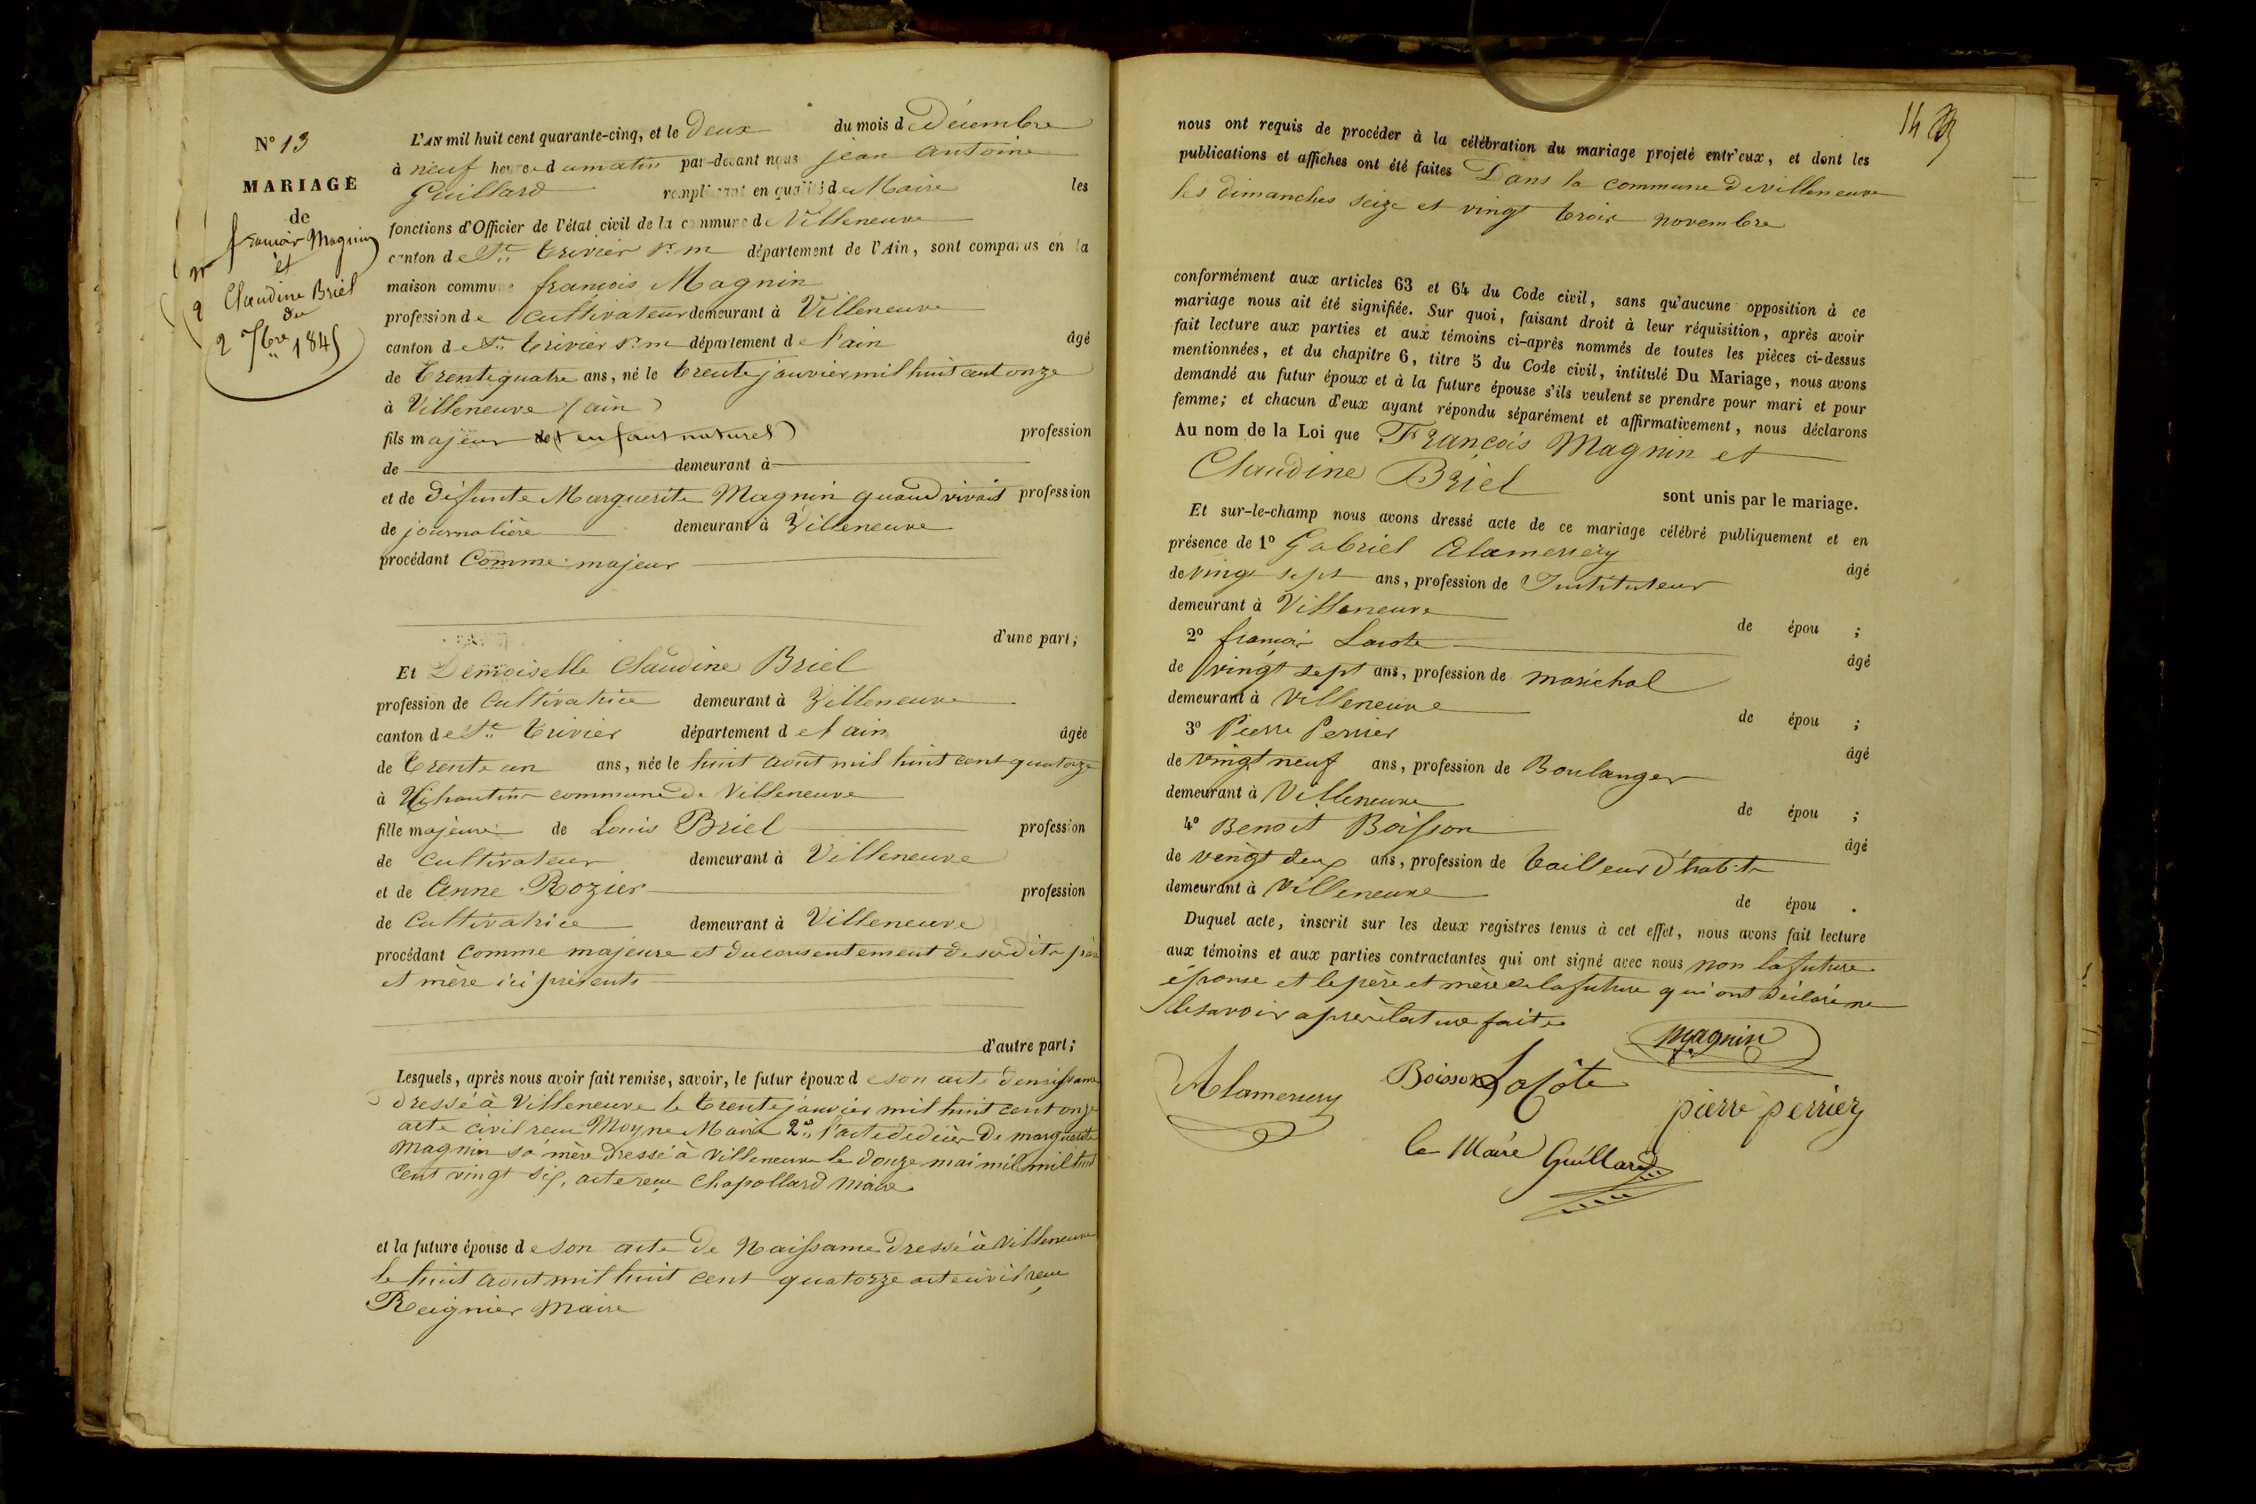 N° 13
MARIAGE
de
françois Magnin
et
Claudine Briel
du
2 Xbre 1845
L'AN mil huit cent quarante-cinq, et le Deux du mois de Décembre
à neuf heure du matin par-devant nous jean antoine
Guillard remplissant en qualité de Maire les
fonctions d'Officier de l'état civil de la commune de Villeneuve
canton de St. trivier s. m département de l'Ain, sont comparus en la
maison commune françois Magnin
profession de cultivateur demeurant à Villeneuve
canton de St. trivier s. m département de l'ain âgé
de trente quatre ans, né le trente janvier mil huit cent onze
à Villeneuve (ain)
fils majeur de (enfant naturel) profession
de demeurant à
et de défunte Marguerite Magnin quand vivait profession
de journalière demeurant à Villeneuve
procédant Comme majeur
d'une part;
Et Demoiselle Claudine Briel
profession de Cultivatrice demeurant à Villeneuve
canton de St. trivier département de l'ain âgée
de trente un ans, née le huit août mil huit cent quatorze
à commune de Villeneuve
fille majeure de Louis Briel profession
de cultivateur demeurant à Villeneuve
et de Anne Rozier profession
de Cultivatrice demeurant à Villeneuve
procédant comme majeure et du consentement de sesdits père
et mère ici présents
d'autre part;
Lesquels, après nous avoir fait remise, savoir, le futur époux de son acte de naissance
dressé à Villeneuve le trente janvier mil huit cent onze
acte civil reçu Moyne Maire 2° l'acte de décès de marguerite
Magnin sa mère dressé à Villeneuve le douze mai mil mil huit
Cent vingt six, acte reçu Chapollard Maire
et la future épouse de son acte de Naissance dressé à Villeneuve
le huit aout mil huit cent quatorze acte civil reçu
Reignier Maire
14
nous ont requis de procéder à la célébration du mariage projeté entr'eux, et dont les
publications et affiches ont été faites Dans la commune de villeneuve
les dimanches seize et vingt trois novembre
conformément aux articles 63 et 64 du Code civil, sans qu'aucune opposition à ce
mariage nous ait été signifiée. Sur quoi, faisant droit à leur réquisition, après avoir
fait lecture aux parties et aux témoins ci-après nommés de toutes les pièces ci-dessus
mentionnées, et du chapitre 6, titre 5 du Code civil, intitulé Du Mariage, nous avons
demandé au futur époux et à la future épouse s'ils veulent se prendre pour mari et pour
femme; et chacun d'eux ayant répondu séparément et affirmativement, nous déclarons
Au nom de la Loi que François Magnin et
Claudine Briel sont unis par le mariage.
Et sur-le-champ nous avons dressé acte de ce mariage célébré publiquement et en
présence de 1° Gabriel Alamercery âgé
de vingt sept ans, profession de Instituteur
demeurant à Villeneuve de épou ;
2° françois Lacote âgé
de vingt sept ans, profession de maréchal
demeurant à Villeneuve de épou ;
3° Pierre Perrier âgé
de vingt neuf ans, profession de Boulanger
demeurant à Villeneuve de épou ;
4° Benoit Boisson âgé
de vingt deux ans, profession de tailleur d'habits
demeurant à Villeneuve de épou .
Duquel acte, inscrit sur les deux registres tenus à cet effet, nous avons fait lecture
aux témoins et aux parties contractantes qui ont signé avec nous non la future
épouse et le père et mère de la future qui ont déclaré ne
le savoir après lecture faite
Magnin
Alamercery Boisson Lacôte
pierre perrier
le Maire Guillard